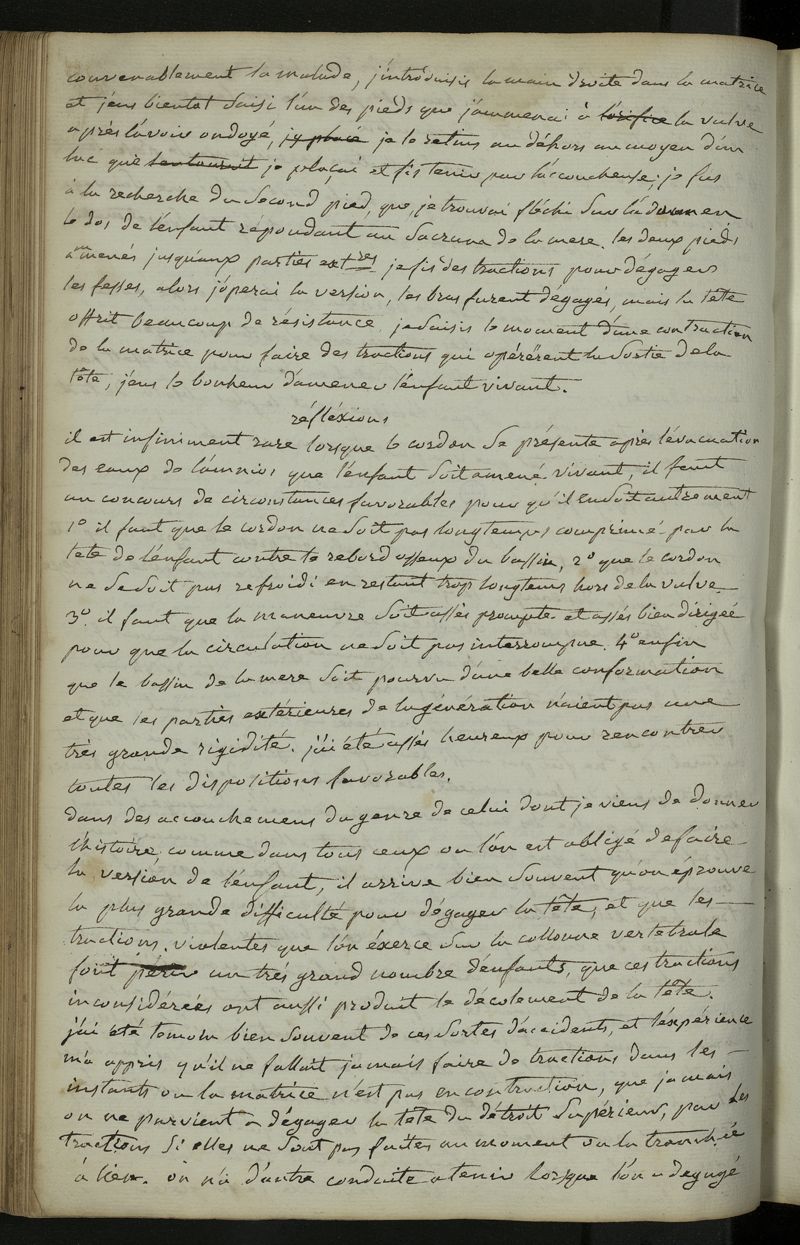 convenablement la malade, j'introduisis la main droite dans la matrice
et j'eus bientot saisi l'un des pieds que j'ammenai à l'orifice la vulve
après l'avoir ondoyé, j'y placé je le retins au déhors au moyen d'un
lac que je plaçai et fis tenir par l'accoucheuse; je fus
à la recherche du second pied, que je trouvai fléchi sur l'abdomen
le dos de l'enfant répondant au sacrum de la mere. les deux pieds
amenés jusqu'aux parties extres je fis des tractions pour dégager
les fesses, alors j'operai la version, les bras furent dégagés, mais la tête
offrit beaucoup de résistance. je saisis le moment d'une contraction
de la matrice pour faire des tractions qui opérérent la sortie de la
tête, j'eus le bonheur d'amener l'enfant vivant.
réfléxions
il est infiniment rare lorsque le cordon se présente après l'évacuation
des eaux de l'amnios que l'enfant soit amené vivant, il faut
un concours de circonstances favorables pour qu'il en soit autrement
1° il faut que le cordon ne soit pas longtemps comprimé par la
tete de l'enfant contre le rebord osseux du bassin, 2° que le cordon
ne se soit pas refroidi en restant trop longtems hors de la vulve
3°. il faut que la maneuvre soit assés prompte et assés bien dirigée
pour que la circulation ne soit pas interrompue. 4° enfin
que le bassin de la mere soit pourvu d'une belle conformation
et que les parties extérieures de la génération n'aient pas une
très grande rigidité. j'ai été assés heureux pour rencontrer
toutes les dispositions favorables.
dans des accouchemens du genre de celui dont je viens de donner
l'histoire, comme dans tous ceux ou l'on est obligé de faire
la version de l'enfant, il arrive bien souvent qu'on éprouve
la plus grande difficulté pour dégager la tête, et que les
tractions violentes que l'on éxerce sur la collonne vertebrale
font périr un trés grand nombre d'enfants, que ces tractions
inconsidérées ont aussi produit le décolement de la tête.
j'ai été temoin bien souvent de ces sortes d'accidents, et l'expérience
m'a appris qu'il ne fallait jamais faire de tractions dans les
instants ou la matrice n'est pas en contraction, que jamais
on ne parvient a dégager la tete du détroit supérieur, par des
tractions si elles ne sont pas faites au moment ou la tranchée
à lieu. on n'a d'autre conduite a tenir lorsque l'on a degagé